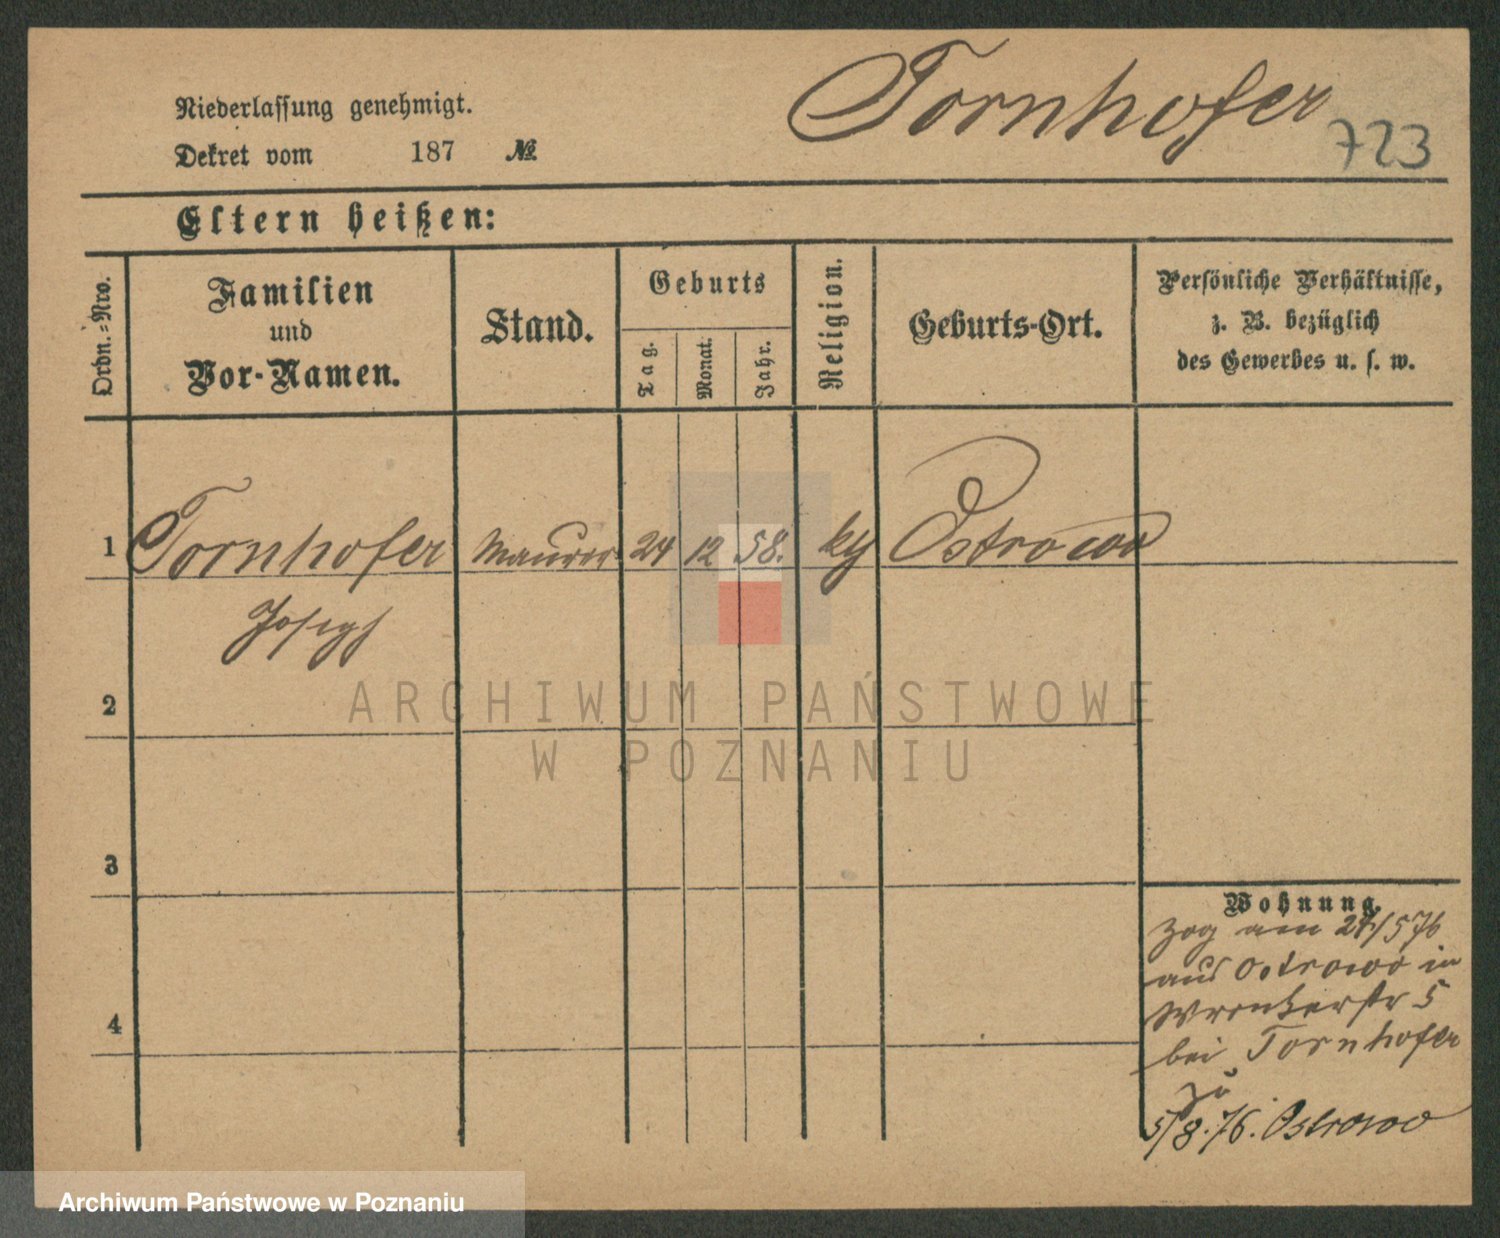 Tornhofer
723
Niederlassung genehmigt.
Dekret vom 187 №
Eltern heißen:
Ordn.-Nro.
Familien
und
Vor-Namen.
Stand.
Geburts
Tag.
Monat.
Jahr.
Religion.
Geburts-Ort.
Persönliche Verhältnisse,
z. B. bezüglich
des Gewerbes u. s. w.
1 Tornhofer Maurer 24 12 58. Ostrowo
Joseph
2
3
4
Wohnung.
Zog am 24/5 76
aus Ostrowo in
Wronkerstr 5
bei Tornhofer
5/8. 76. Ostrowo
ARCHIWUM PAŃSTWOWE
W POZNANIU
Archiwum Państwowe w Poznaniu